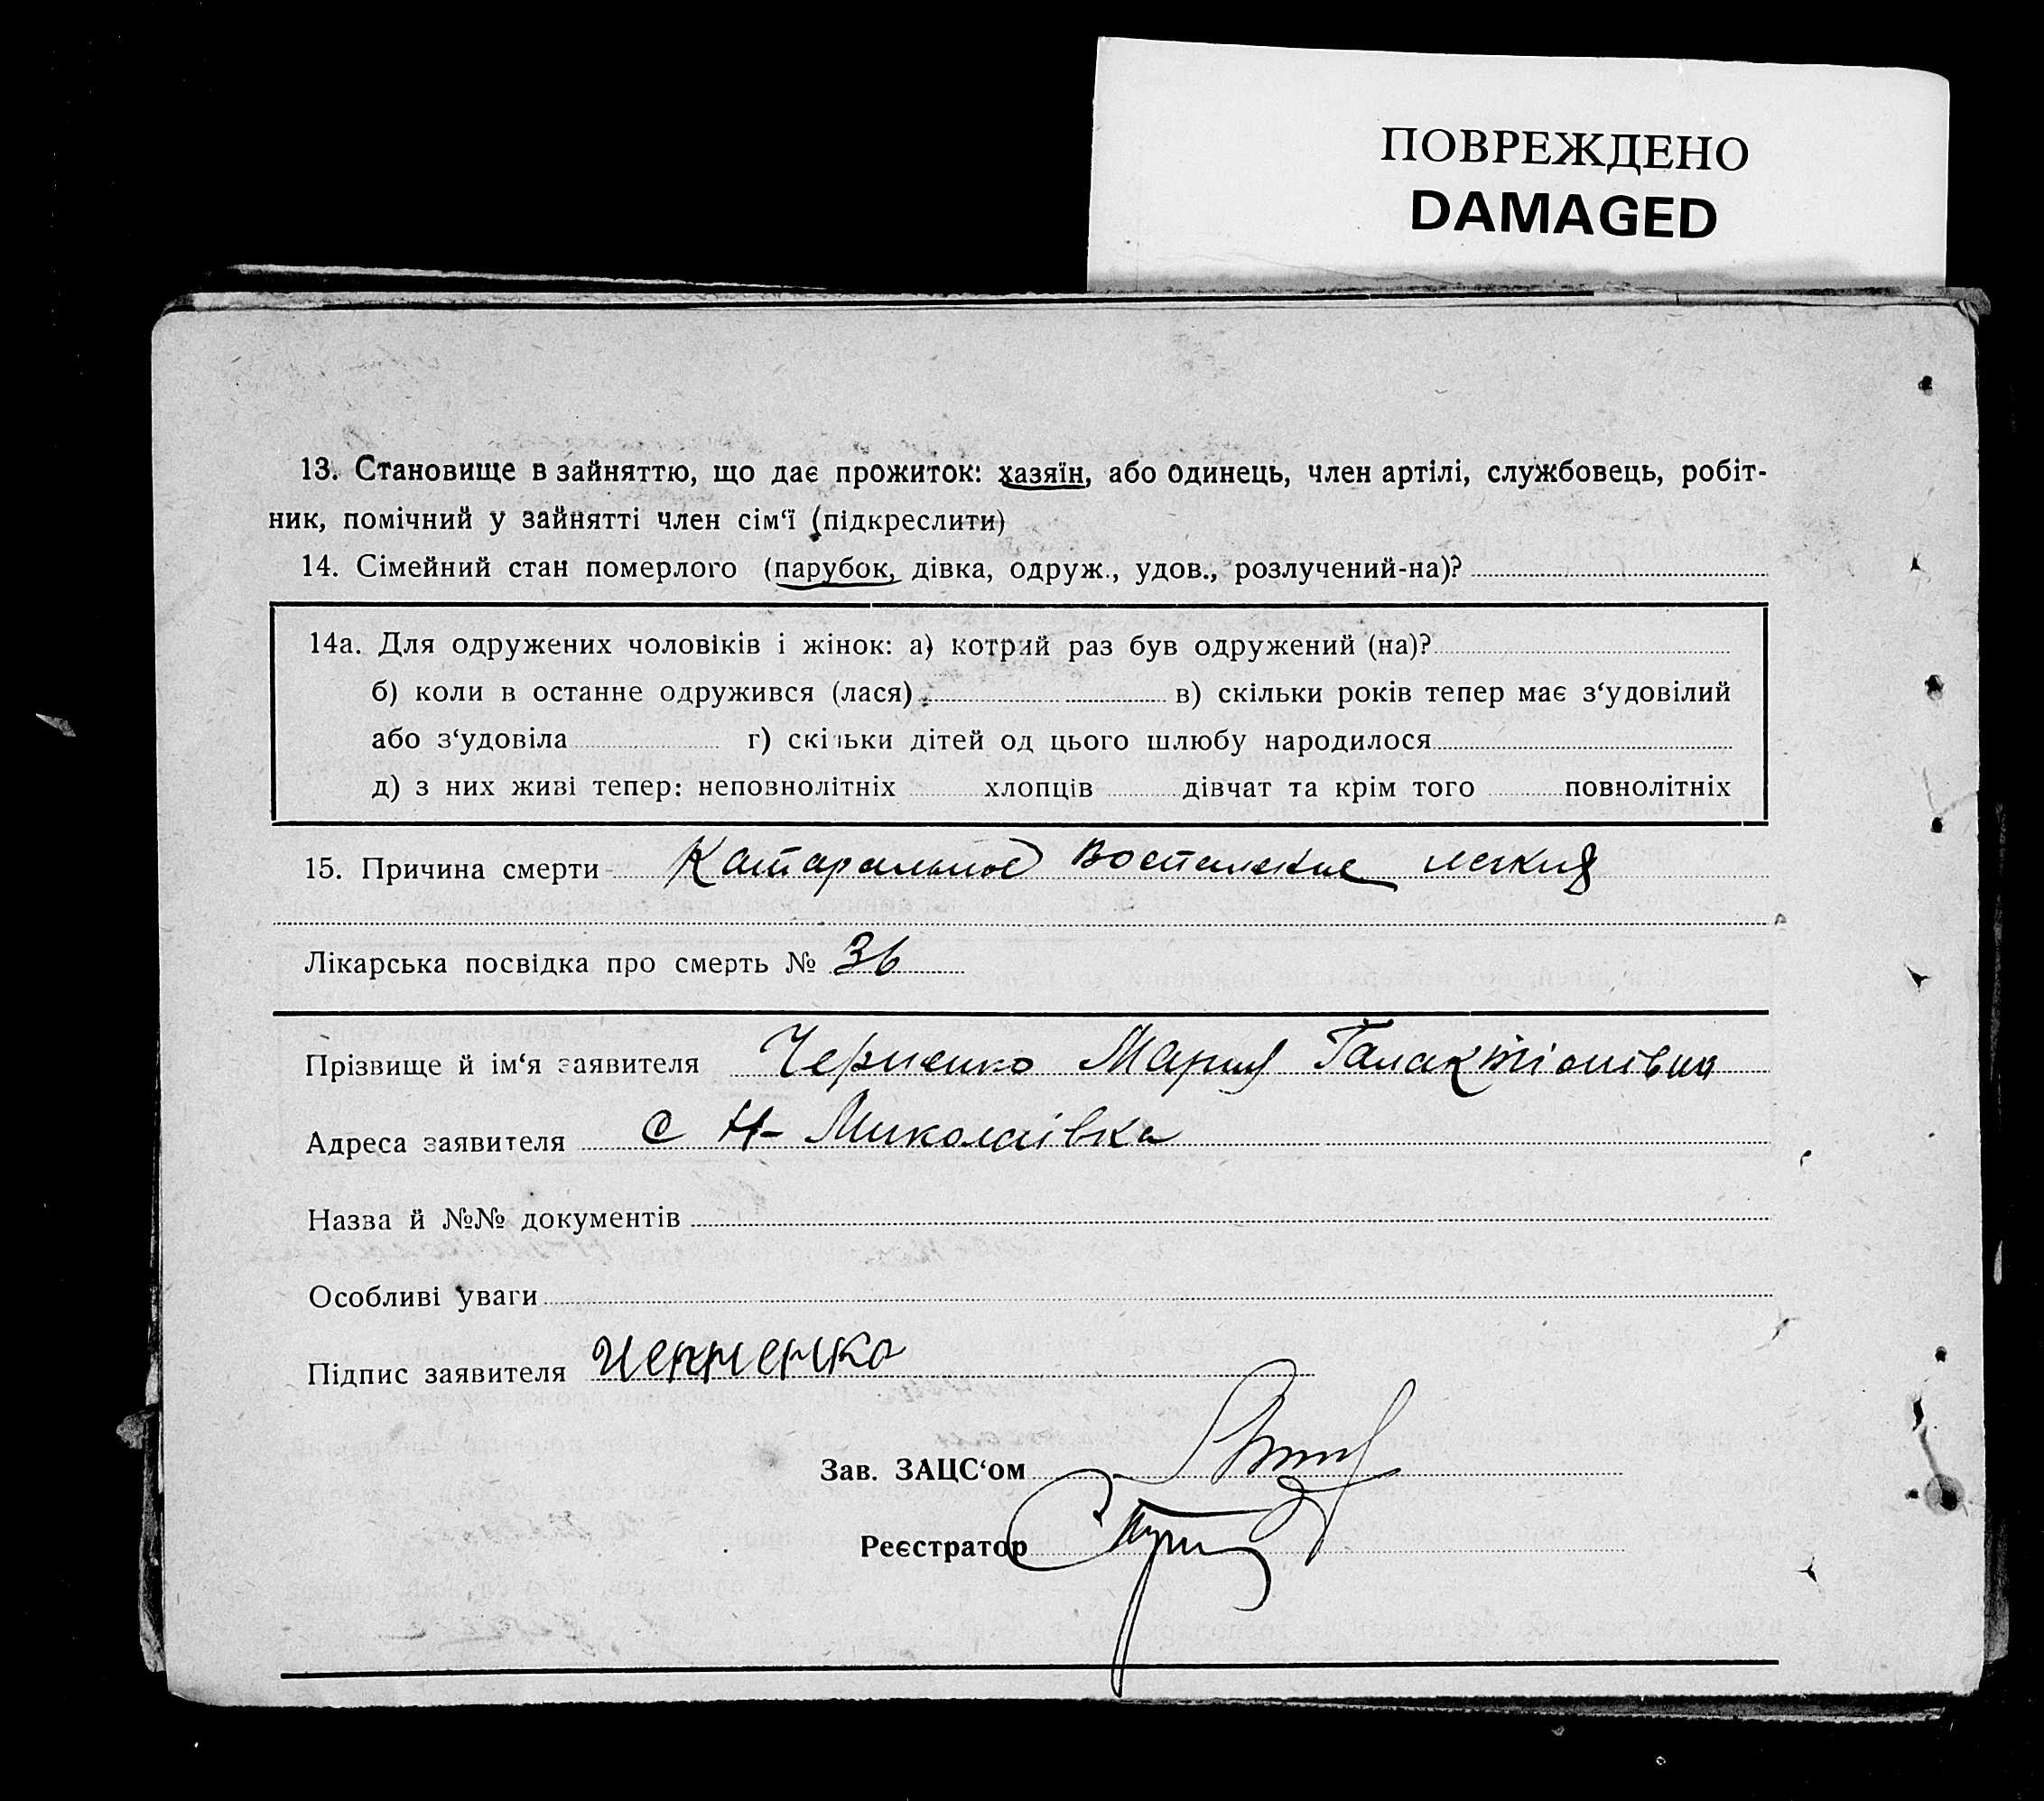 ПОВРЕЖДЕНО
DAMAGED
13. Становище в зайняттю, що дає прожиток: хазяїн, або одинець, член артілі, службовець, робіт-
ник, помічний у зайнятті член сім‘ї (підкреслити)
14. Сімейний стан померлого (парубок, дівка, одруж., удов., розлучений-на)?
14а. Для одружених чоловіків і жінок: а) котрий раз був одружений (на)?
б) коли в останне одружився (лася) в) скільки років тепер має з‘удовілий
або з‘удовіла г) скільки дітей од цього шлюбу народилося
д) з них живі тепер: неповнолітніх хлопців дівчат та крім того повнолітніх
15. Причина смерти Катаральное воспаление легких
Лікарська посвідка про смерть № 36
Прізвище й ім‘я заявителя Черненко Мария Галактіонівна
Адреса заявителя с Н-Миколаївка
Назва й №№ документів
Особливі уваги
Підпис заявителя Черненко
Зав. ЗАЦС‘ом
Реєстратор